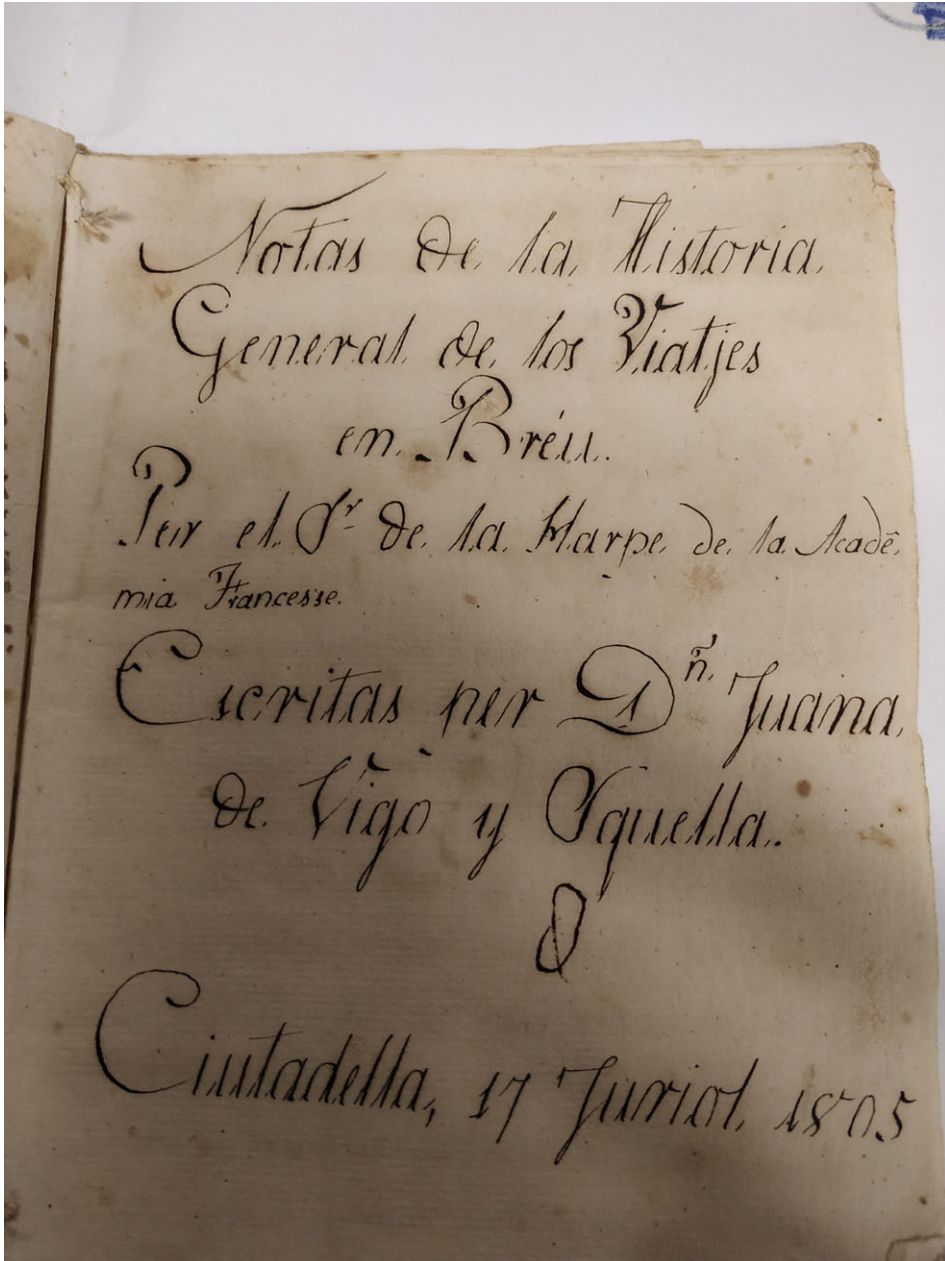 Notas de la Historia
General de los Viatjes
en Bréu.
Per el Sr. de la Harpe de la Acadê-
mia Francesse.
Escritas per Dñ. Juana
de Vigó y Squella.
Ciutadella, 17 Juriol 1805